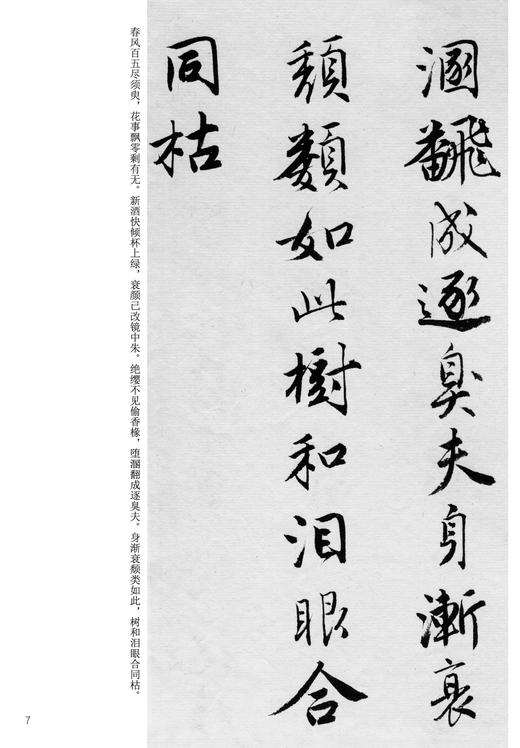 溷飜成逐臭夫身漸衰
頹類如此樹和泪眼合
同枯
春风百五尽须臾，花事飘零剩有无。新酒快倾杯上绿，衰颜已改镜中朱。绝缨不见偷香椽，堕溷翻成逐臭夫。身渐衰颓类如此，树和泪眼合同枯。
7